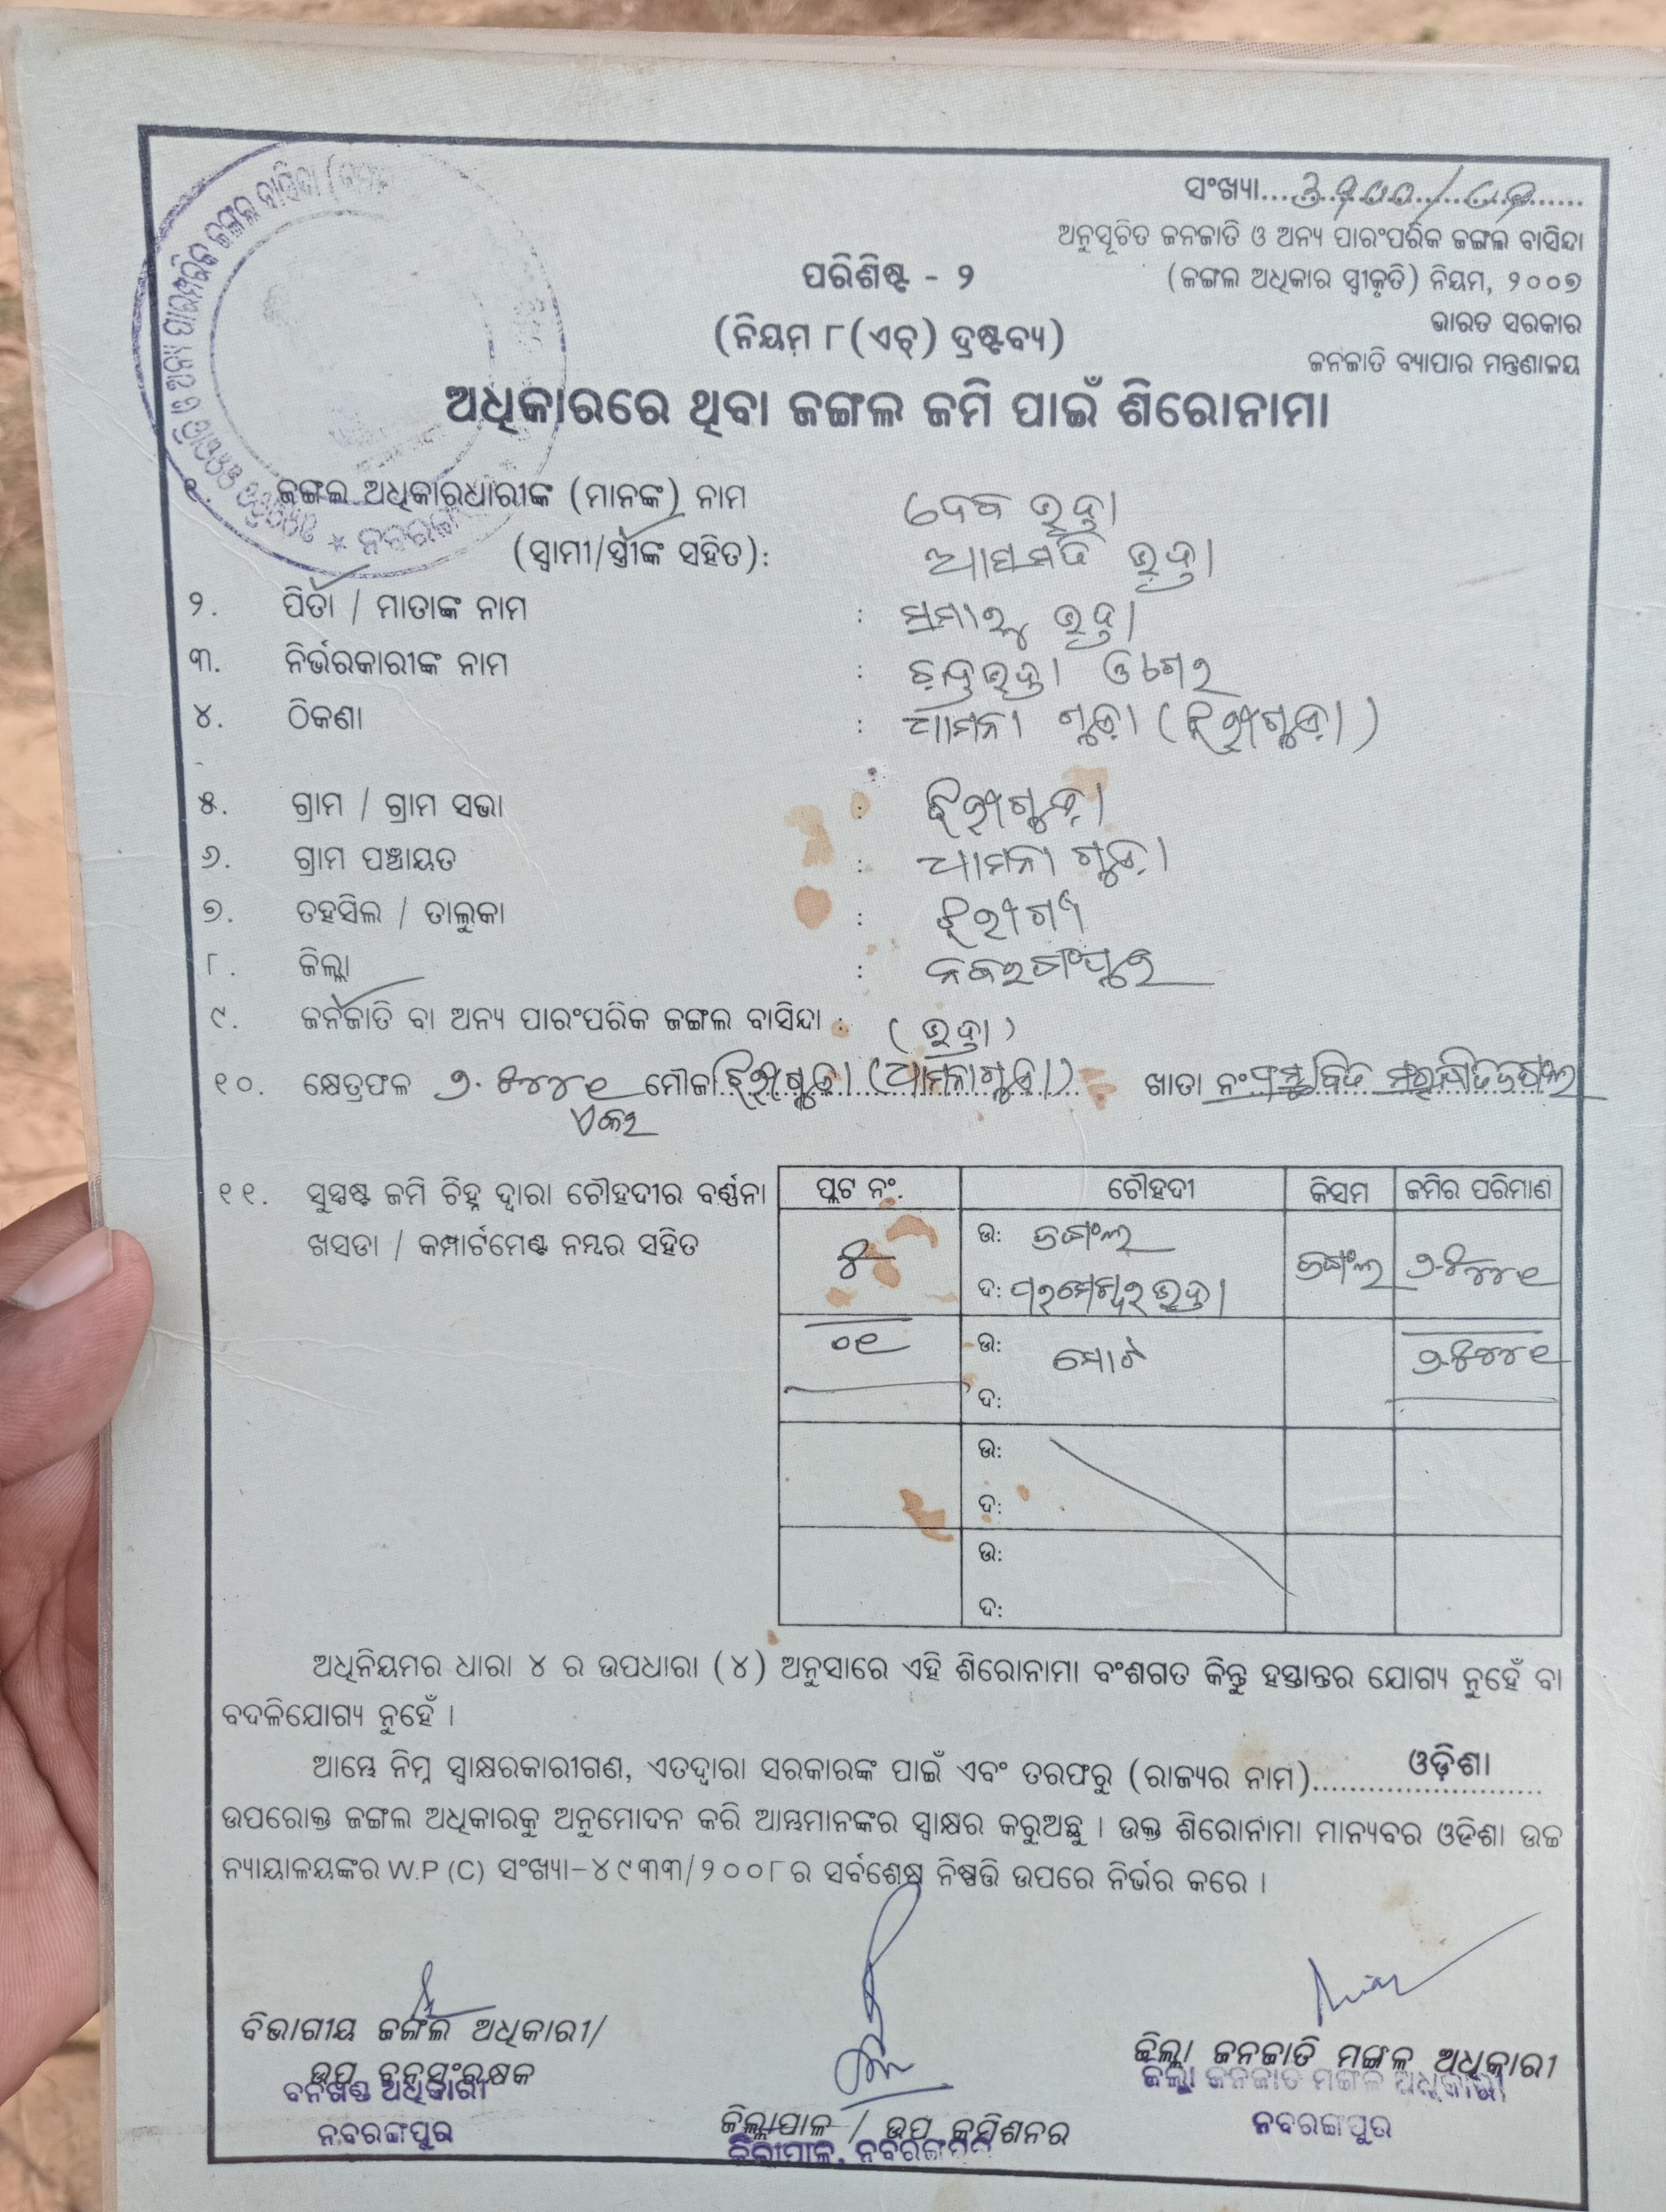 ସଂଖ୍ୟା
ଅନୁସୂଚିତ ଜନଜାତି ଓ ଅନ୍ୟ ପାରଂପରିକ ଜଙ୍ଗଲ ବାସିନ୍ଦା
(ଜଙ୍ଗଲ ଅଧିକାର ସ୍ୱୀକୃତି) ନିୟମ, ୨୦୦୭
ଭାରତ ସରକାର
ଜନଜାତି ବ୍ୟାପାର ମନ୍ତ୍ରଣାଳୟ
ପରିଶିଷ୍ଟ - ୨
(ନିୟମ ୮(ଏଚ୍) ଦ୍ରଷ୍ଟବ୍ୟ)
ଅଧିକାରରେ ଥିବା ଜଙ୍ଗଲ ଜମି ପାଇଁ ଶିରୋନାମା
୧. ଜଙ୍ଗଲ ଅଧିକାରଧାରୀଙ୍କ (ମାନଙ୍କ) ନାମ ଦେବ ଭତ୍ରା
(ସ୍ୱାମୀ/ସ୍ତ୍ରୀଙ୍କ ସହିତ): ଭତ୍ରା
୨. ପିତା / ମାତାଙ୍କ ନାମ : ଭତ୍ରା
୩. ନିର୍ଭରକାରୀଙ୍କ ନାମ :
୪. ଠିକଣା : ଆମନା ଗୁଡ଼ା (ଝରୀଗୁଡ଼ା)
୫. ଗ୍ରାମ / ଗ୍ରାମ ସଭା : ଝରୀଗୁଡ଼ା
୬. ଗ୍ରାମ ପଞ୍ଚାୟତ : ଆମନା ଗୁଡ଼ା
୭. ତହସିଲ / ତାଲୁକା : ଝରୀଗାଁ
୮. ଜିଲ୍ଲା : ନବରଙ୍ଗପୁର
୯. ଜନଜାତି ବା ଅନ୍ୟ ପାରଂପରିକ ଜଙ୍ଗଲ ବାସିନ୍ଦା : (ଭତ୍ରା)
୧୦. କ୍ଷେତ୍ରଫଳ ୬.୫୪୪୧ ମୌଜା ଝରୀଗୁଡ଼ା (ଆମନାଗୁଡ଼ା) ଖାତା ନଂ
ଏକର
୧୧. ସୁସ୍ପଷ୍ଟ ଜମି ଚିହ୍ନ ଦ୍ୱାରା ଚୌହଦୀର ବର୍ଣ୍ଣନା
ଖସଡା / କମ୍ପାର୍ଟମେଣ୍ଟ ନମ୍ବର ସହିତ
ପ୍ଲଟ ନଂ. ଚୌହଦୀ କିସମ ଜମିର ପରିମାଣ
ଉ: ଜଙ୍ଗଲ
ଦ: ପରମେଶ୍ୱର ଭତ୍ରା ଜଙ୍ଗଲ ୬.୫୪୪୧
୦୧ ଉ: ମୋଟ ୬.୫୪୪୧
ଦ:
ଉ:
ଦ:
ଉ:
ଦ:
ଅଧିନିୟମର ଧାରା ୪ ର ଉପଧାରା (୪) ଅନୁସାରେ ଏହି ଶିରୋନାମା ବଂଶଗତ କିନ୍ତୁ ହସ୍ତାନ୍ତର ଯୋଗ୍ୟ ନୁହେଁ ବା
ବଦଳିଯୋଗ୍ୟ ନୁହେଁ ।
ଆମ୍ଭେ ନିମ୍ନ ସ୍ୱାକ୍ଷରକାରୀଗଣ, ଏତଦ୍ୱାରା ସରକାରଙ୍କ ପାଇଁ ଏବଂ ତରଫରୁ (ରାଜ୍ୟର ନାମ) ଓଡ଼ିଶା
ଉପରୋକ୍ତ ଜଙ୍ଗଲ ଅଧିକାରକୁ ଅନୁମୋଦନ କରି ଆମ୍ଭମାନଙ୍କର ସ୍ୱାକ୍ଷର କରୁଅଛୁ । ଉକ୍ତ ଶିରୋନାମା ମାନ୍ୟବର ଓଡିଶା ଉଚ୍ଚ
ନ୍ୟାୟାଳୟଙ୍କର W.P (C) ସଂଖ୍ୟା-୪୯୩୩/୨୦୦୮ ର ସର୍ବଶେଷ ନିଷ୍ପତ୍ତି ଉପରେ ନିର୍ଭର କରେ ।
ବିଭାଗୀୟ ଜଙ୍ଗଲ ଅଧିକାରୀ/
ଉପ ବନସଂରକ୍ଷକ
ବନଖଣ୍ଡ ଅଧିକାରୀ
ନବରଙ୍ଗପୁର
ଜିଲ୍ଲାପାଳ / ଉପ କମିଶନର
ଜିଲ୍ଲାପାଳ, ନବରଙ୍ଗପୁର
ଜିଲ୍ଲା ଜନଜାତି ମଙ୍ଗଳ ଅଧିକାରୀ
ଜିଲ୍ଲା ଜନଜାତି ମଙ୍ଗଳ ଅଧିକାରୀ
ନବରଙ୍ଗପୁର